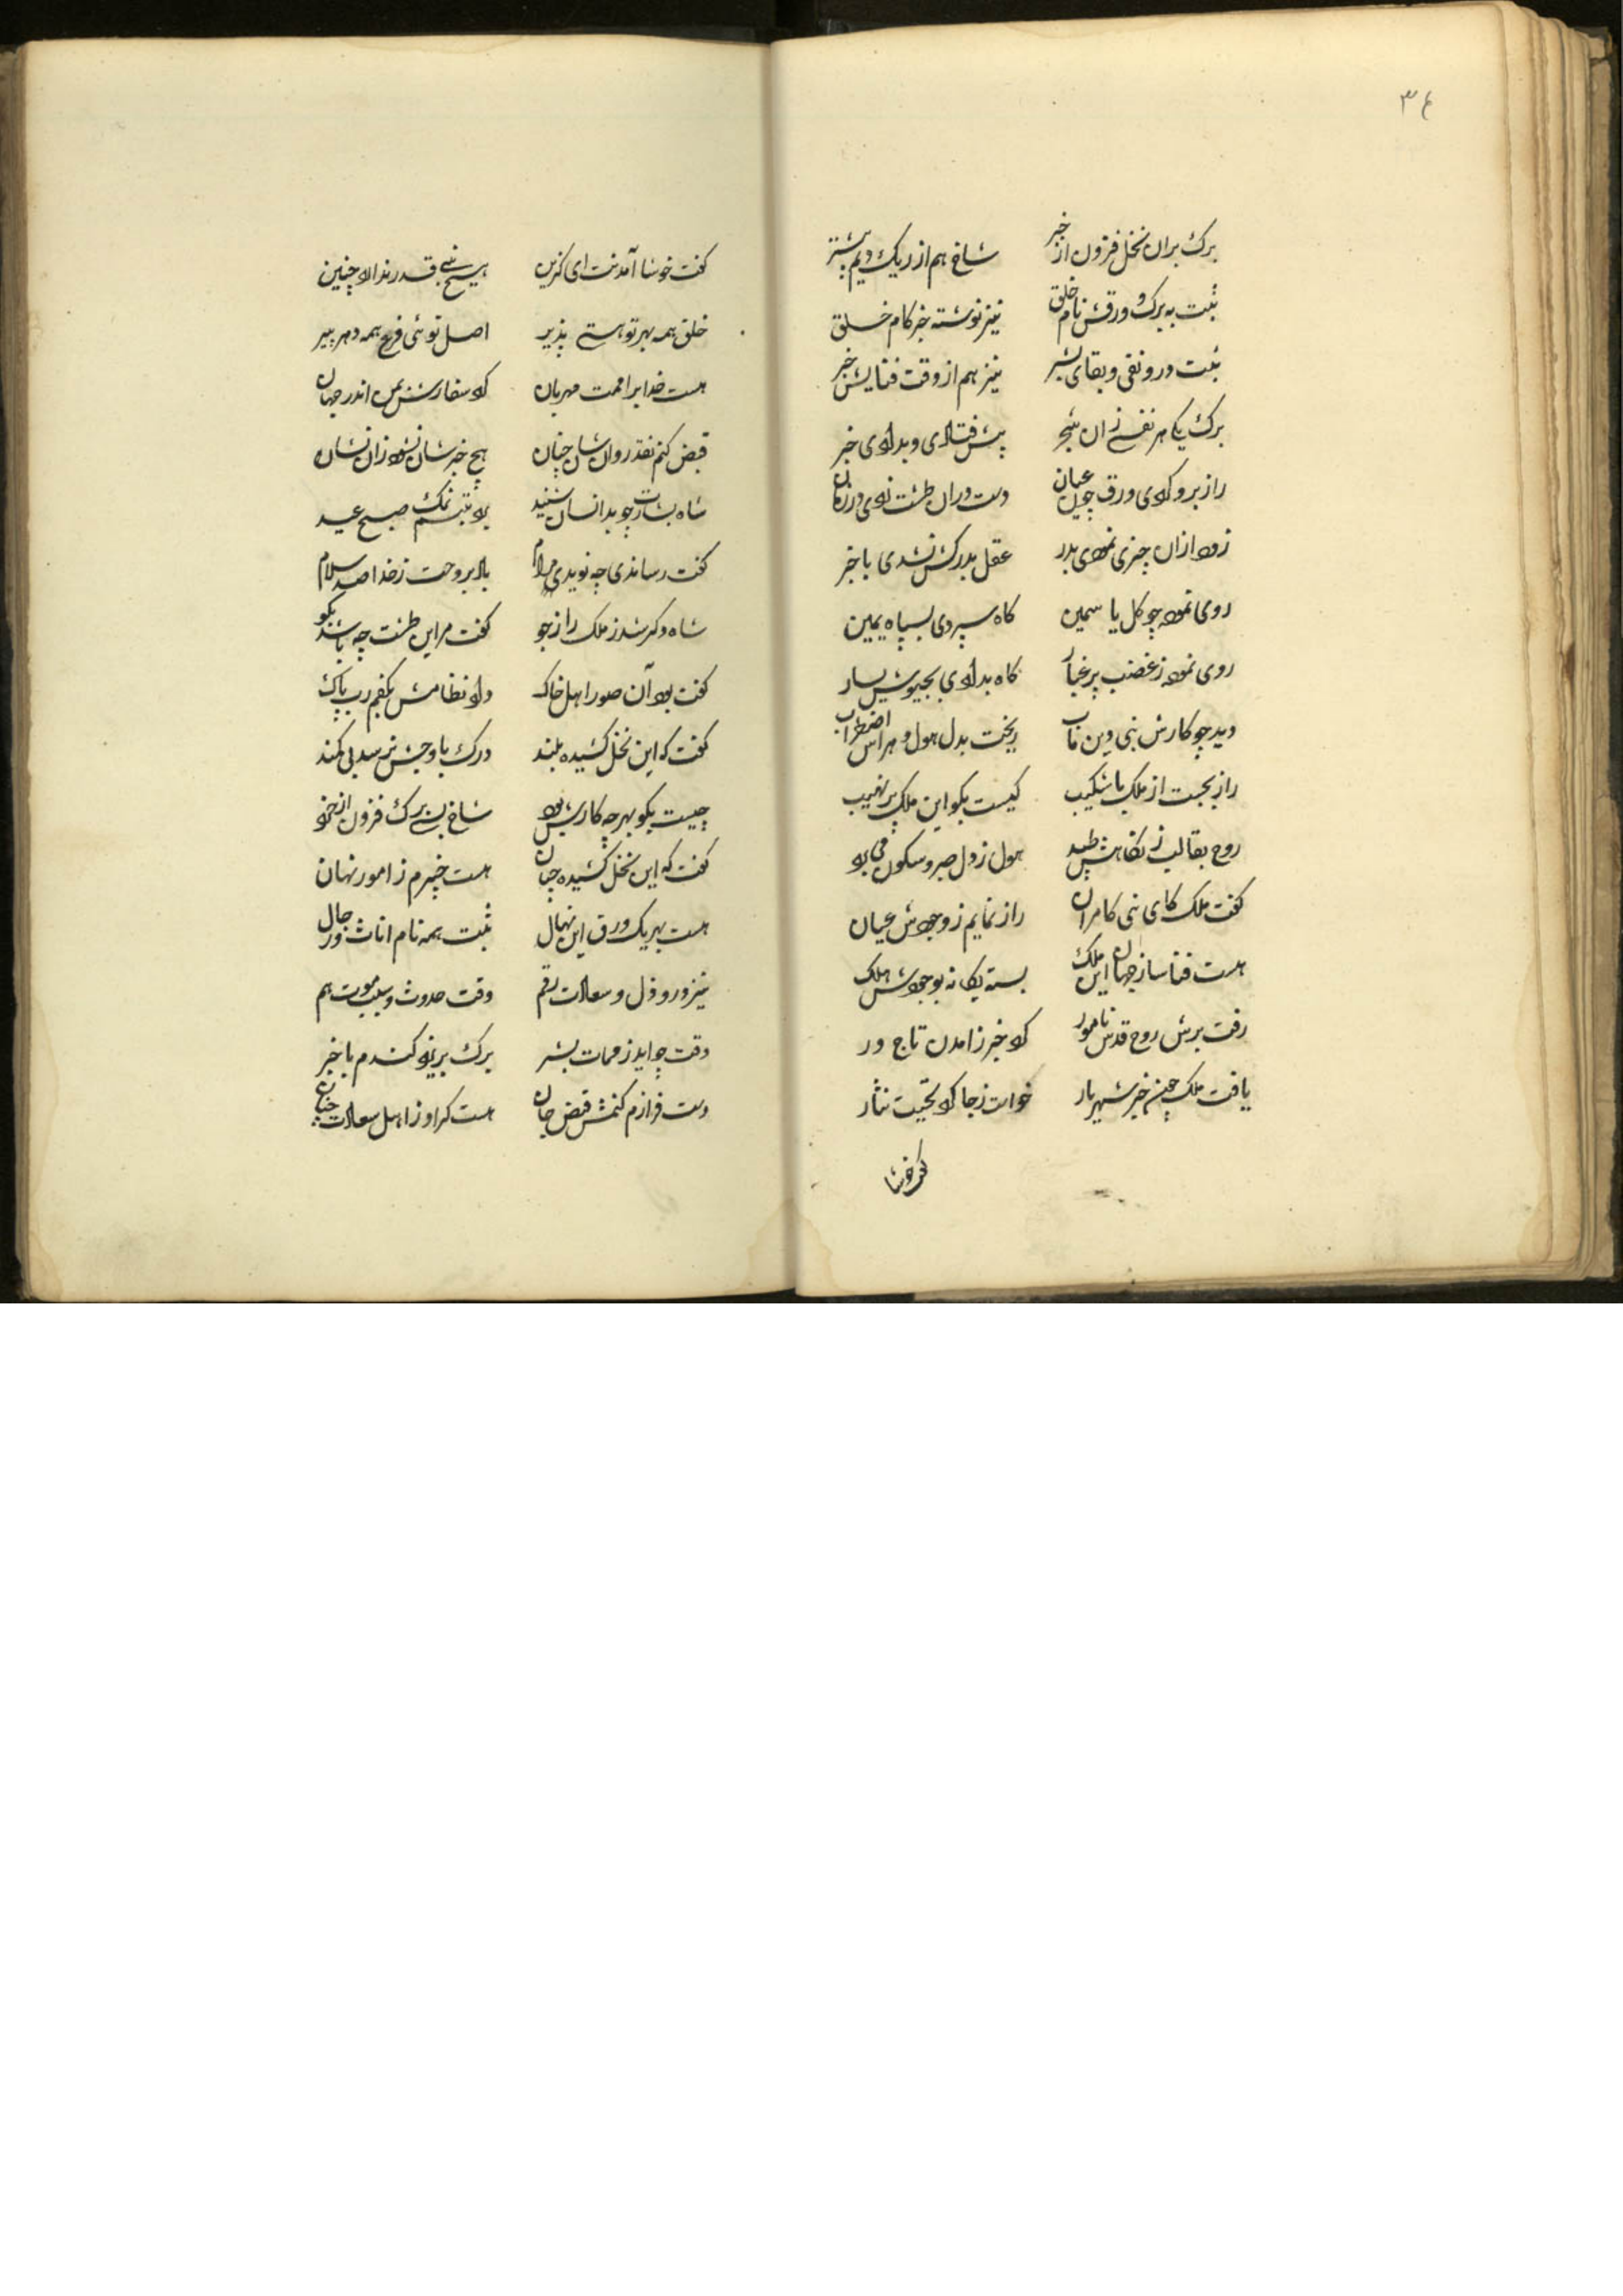 ۳٤
برک بران نخل فزون از خبر شاخ هم از ریک دیم بیشتر
ثبت به برک و ورقش نام خلق نیز نوشته خبر کام خلق
ثبت درو نفی و بقای بشر نیز هم از وقت فنایش خبر
برک یکی هر نفسی زان شجر پیش فتادی و بدادی خبر
راز برو کردی ورق چون عیان دست دران طشت زدی در زمان
زود ازان چیزی نمودی بدر عقل بدرکش نشدی باخبر
روی نمود چو کل یاسمین کاه سپردی بسپاه یمین
روی نمود ز غضب پر غبار کاه بدادی بجیوش یسار
دید چو کارش نبی دین مآب ریخت بدل هول و هراس اضطراب
راز بجست از ملک باشکیب کیست بکو این ملک پر نهیب
روح بقالب ز نکاهش طپید هول ز دل صبر و سکون می برد
کفت ملک کای نبی کامران راز نمایم ز وجودش عیان
هست فنا ساز جهان این ملک بسته یکانه بوجودش هلک
رفت برش روح قدس نامور کرد خبر زامدن تاج ور
یافت ملک چون خبر شهریار خواست ز جا کرد تحیت نثار
کفت خوشا
کفت خوشا آمدنت ای کزین هیچ نبی قدر ندارد چنین
خلق همه بهر تو هستی پذیر اصل توئی فرع همه دهر پیر
هست خدا بر امتت مهربان کرد سفارش بمن اندر جهان
قبض کنم نقد روان شان چنان هیچ خبر شان نشود زان نشان
شاه بشارت چو بدانسان شنید کرد تبسم نمک صبح عید
کفت رساندی چه نویدی مرا باد بروحت ز خدا صد سلام
شاه دکر شد ز ملک راز جو کفت مر این طشت چه باشد بکو
کفت بود آن صور اهل خاک داد نظامش بکفم رب پاک
کفت که این نخل کشیده بلند درک باوجش نرسد بی کمند
چیست بکو بهر چه کارش بود شاخ بسی برک فزون از خرد
کفت که این نخل کشیده چنان هست خبرم ز امور نهان
هست بهر یک ورق این نهال ثبت همه نام اناث و رجال
نیز درو ذل و سعادت رقم وقت حدوث و سبب موت هم
وقت چو آید ز ممات بشر برک بریزد کندم باخبر
دست فرازم کنمش قبض جان هست کر او ز اهل سعادت جنان